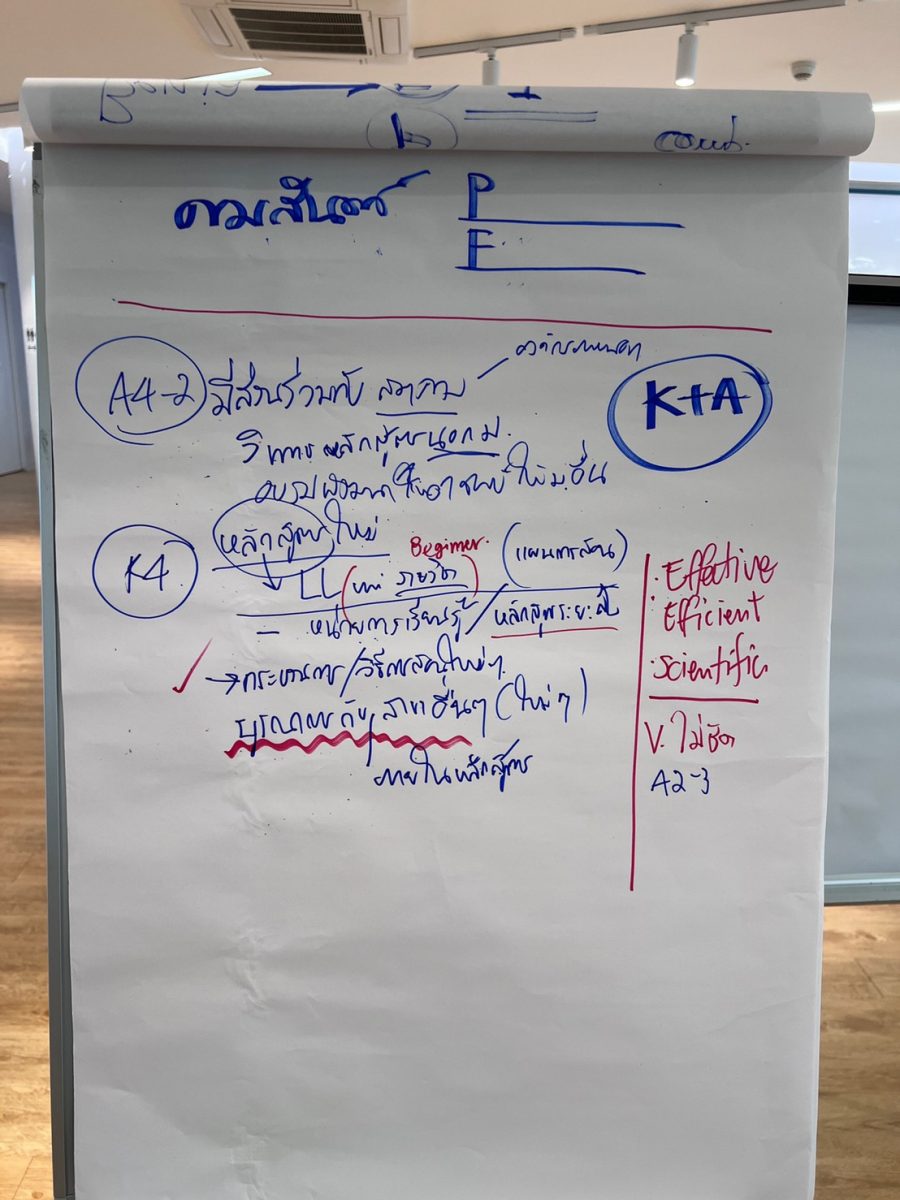 ความสัมพันธ์
P
F
A4-2 มีส่วนร่วมกับ สภาคม
K+A
วิพากษ์ หลักสูตรนอก ม.
ให้ ม.อื่น
K4 หลักสูตรใหม่
Beginner.
LL (ใหม่ รายวิชา) (แผนการสอน)
– หน่วยการเรียนรู้ / หลักสูตรระยะสั้น
→ กระบวนการ/วิธีการสอนใหม่ๆ
บูรณาการกับสาขาอื่นๆ (ใหม่ๆ)
ภายในหลักสูตร
· Effective
· Efficient
· Scientific
V. ไม่ชัด
A2-3